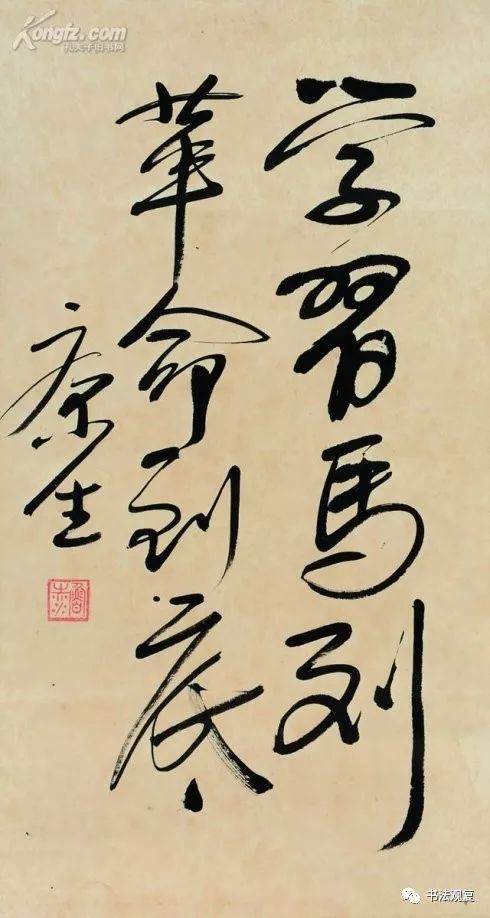 Kongfz.com
孔夫子旧书网
学習馬列
革命到底
康生
魯赤水
书法观复